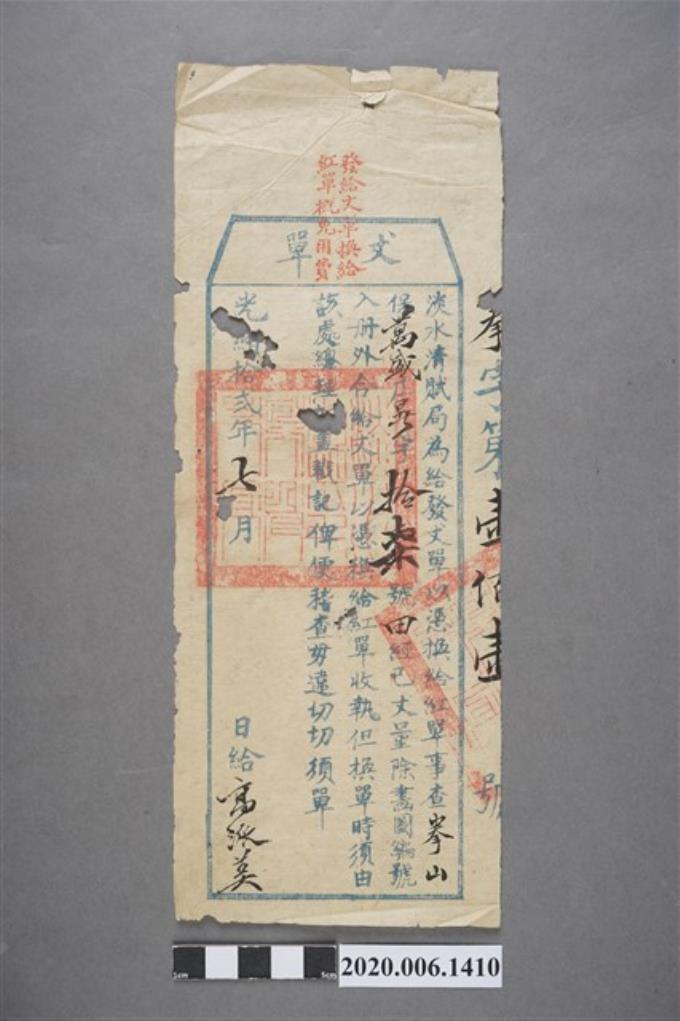 發給丈單換給
紅單概免用費
丈單
拳字第壹佰壹號
淡水清賦局為給發丈單以憑換給紅單事查拳山
保萬盛庄吳字拾柒號田經已丈量除畫圖編號
入冊外合給丈單以憑換給紅單收執但換單時須由
該處總理蓋戳記俾便稽查毋違切切須單
光緒拾貳年七月 日給高派英
2020.006.1410